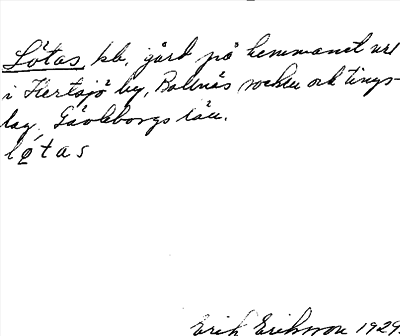 Lötas, kb, gård på hemmanet nr 1
i Hertsjö by, Bollnäs socken och tings-
lag, Gävleborgs län.
lø̀tas
Erik Eriksson 1929.